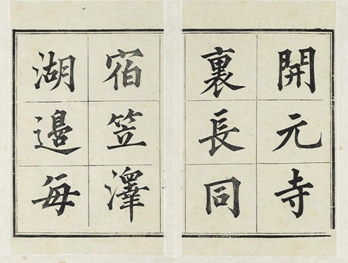 開元寺
裏長同
宿笠澤
湖邉每